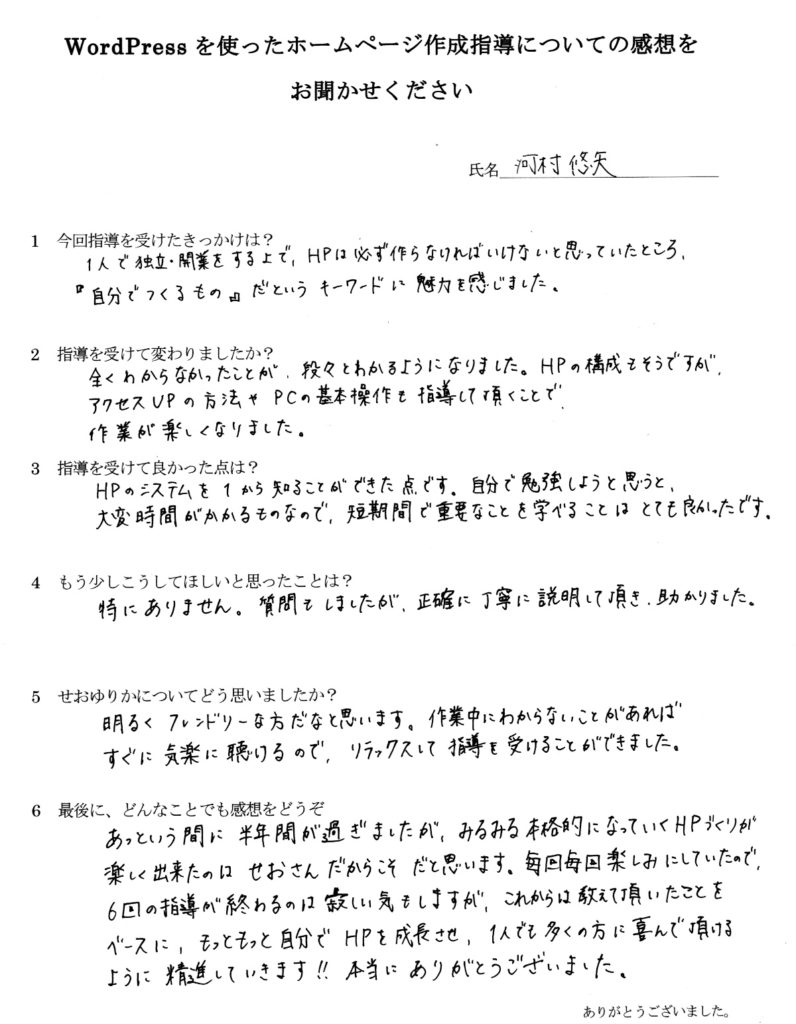 WordPress を使ったホームページ作成指導についての感想を
お聞かせください
氏名 河村悠矢
1 今回指導を受けたきっかけは？
1人で独立・開業をする上で、HPは必ず作らなければいけないと思っていたところ、
『自分でつくるもの』だという キーワードに 魅力を感じました。
2 指導を受けて変わりましたか？
全くわからなかったことが、段々とわかるようになりました。HPの構成もそうですが、
アクセスUPの方法や PCの基本操作も 指導して頂くことで、
作業が楽しくなりました。
3 指導を受けて良かった点は？
HPのシステムを 1から知ることができた点です。自分で勉強しようと思うと、
大変時間がかかるものなので、短期間で重要なことを学べることは とても良かったです。
4 もう少しこうしてほしいと思ったことは？
特にありません。質問も しましたが、正確に丁寧に説明して頂き、助かりました。
5 せおゆりかについてどう思いましたか？
明るく フレンドリーな方だなと思います。作業中にわからないことがあれば
すぐに 気楽に聴けるので、リラックスして 指導を受けることができました。
6 最後に、どんなことでも感想をどうぞ
あっという間に 半年間が過ぎましたが、みるみる本格的になっていくHPづくりが
楽しく出来たのは せおさんだからこそ だと思います。毎回毎回楽しみにしていたので、
6回の指導が終わるのは 寂しい気もしますが、これからは教えて頂いたことを
ベースに、もっともっと自分で HPを成長させ、1人でも多くの方に喜んで頂ける
ように 精進していきます!! 本当に ありがとうございました。
ありがとうございました。